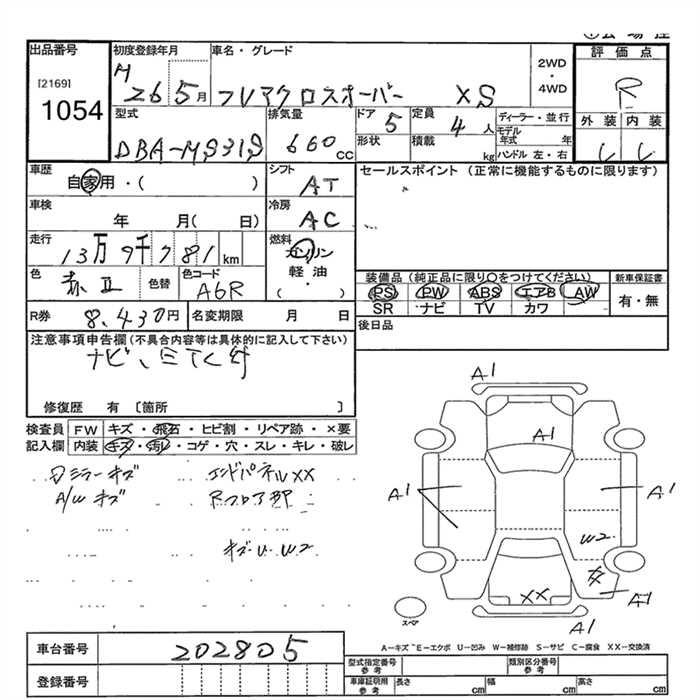 出品番号
[2169]
1054
初度登録年月
H 26 5月
車名・グレード
フレアクロスオーバー XS
2WD
・
4WD
評価点
R
外装 内装
型式
DBA-MS31S
排気量
660 CC
ドア 5
形状
定員 4 人
積載 kg
ディーラー・並行
モデル年式 年
ハンドル 左・右
車歴
自家用・( )
シフト
AT
セールスポイント (正常に機能するものに限ります)
車検
年 月( 日)
冷房
AC
走行
13万9千781km
燃料
ガソリン
軽油・
( )
色
色替
色コード
A6R
装備品 (純正品に限り○をつけてください)
PS PW ABS エアB AW
SR ナビ TV カワ
新車保証書
有・無
R券 8,430円
名変期限 月 日
後日品
注意事項申告欄(不具合内容等は具体的に記入して下さい)
ナビ、ETC付
修復歴 有 〔箇所 〕
検査員
記入欄
FW キズ・飛石・ヒビ割・リペア跡・×要
内装 キズ・汚レ・コゲ・穴・スレ・キレ・破レ
ミラーキズ
A/W キズ
エンドパネルXX
Rフロア部
キズ・U W2
A1
A1
A1
A1
W2
XX
A1
A1
スペア
A-キズ E-エクボ U-凹み W-補修跡 S-サビ C-腐食 XX-交換済
車台番号 202805
登録番号
型式指定番号 参考
類別区分番号 参考
車庫証明用 参考
長さ cm
幅 cm
高さ cm